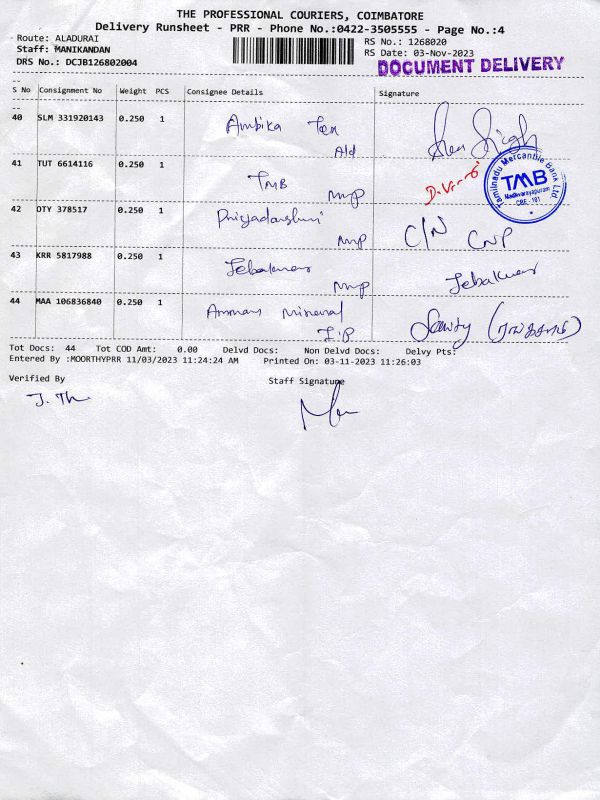 THE PROFESSIONAL COURIERS, COIMBATORE
Delivery Runsheet - PRR - Phone No.:0422-3505555 - Page No.:4
Route: ALADURAI
RS No.: 1268020
Staff: MANIKANDAN
RS Date: 03-Nov-2023
DRS No.: DCJB126802004
DOCUMENT DELIVERY
S No Consignment No Weight PCS Consignee Details Signature
40 SLM 331920143 0.250 1 Ambika Tex
Ald
41 TUT 6614116 0.250 1 TMB
mvp
Tamilnadu Mercantile Bank Ltd.
TMB
Madhvarayapuram
CBE - 101
42 OTY 378517 0.250 1 Priyadarshini
mvp C/N CNP
43 KRR 5817988 0.250 1 Jebakumar
mvp Jebakumar
44 MAA 106836840 0.250 1 Amman Mineral
I.P
Tot Docs: 44 Tot COD Amt: 0.00 Delvd Docs: Non Delvd Docs: Delvy Pts:
Entered By :MOORTHYPRR 11/03/2023 11:24:24 AM Printed On: 03-11-2023 11:26:03
Verified By Staff Signature